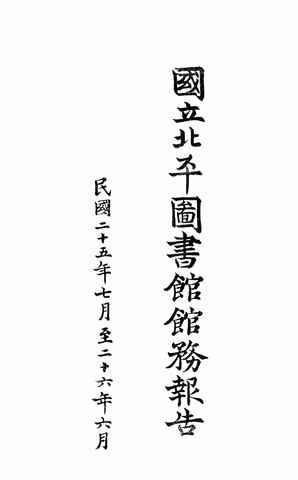 國立北平圖書館館務報告
民國二十五年七月至二十六年六月